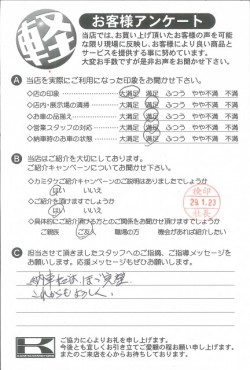 軽
お客様アンケート
当店では、お買い上げ頂いたお客様の声を可能
な限り現場に反映し、お客様により良い商品と
サービスを提供する事に努めています。
大変お手数ですが是非お声をお聞かせ下さい。
A 当店を実際にご利用になった印象をお聞かせ下さい。
◇店の印象 大満足 満足 ふつう やや不満 不満
◇店内・展示場の清掃 大満足 満足 ふつう やや不満 不満
◇お車の品揃え 大満足 満足 ふつう やや不満 不満
◇営業スタッフの対応 大満足 満足 ふつう やや不満 不満
◇納車時のお車の状態 大満足 満足 ふつう やや不満 不満
B 当店はご紹介を大切にしております。
ご紹介キャンペーンについてお聞かせ下さい。
◇カミタケご紹介キャンペーンのご説明はありましたでしょうか
はい いいえ
◇ご紹介を頂けますでしょうか
はい いいえ
◇具体的にご紹介頂ける方との関係をお聞かせ頂けますでしょうか
ご親族 ご友人 職場の方 機会があれば紹介したい
検印
社長
C 担当させて頂きましたスタッフへのご指摘、ご指導メッセージを
お願いします。応援メッセージもぜひお願いします。
これからもよろしく。
K
ご協力に心よりお礼を申し上げます。
今後とも宜しくお引き立てご愛顧の程お願い申し上げます。
またのご来店を心からお待ちしております。